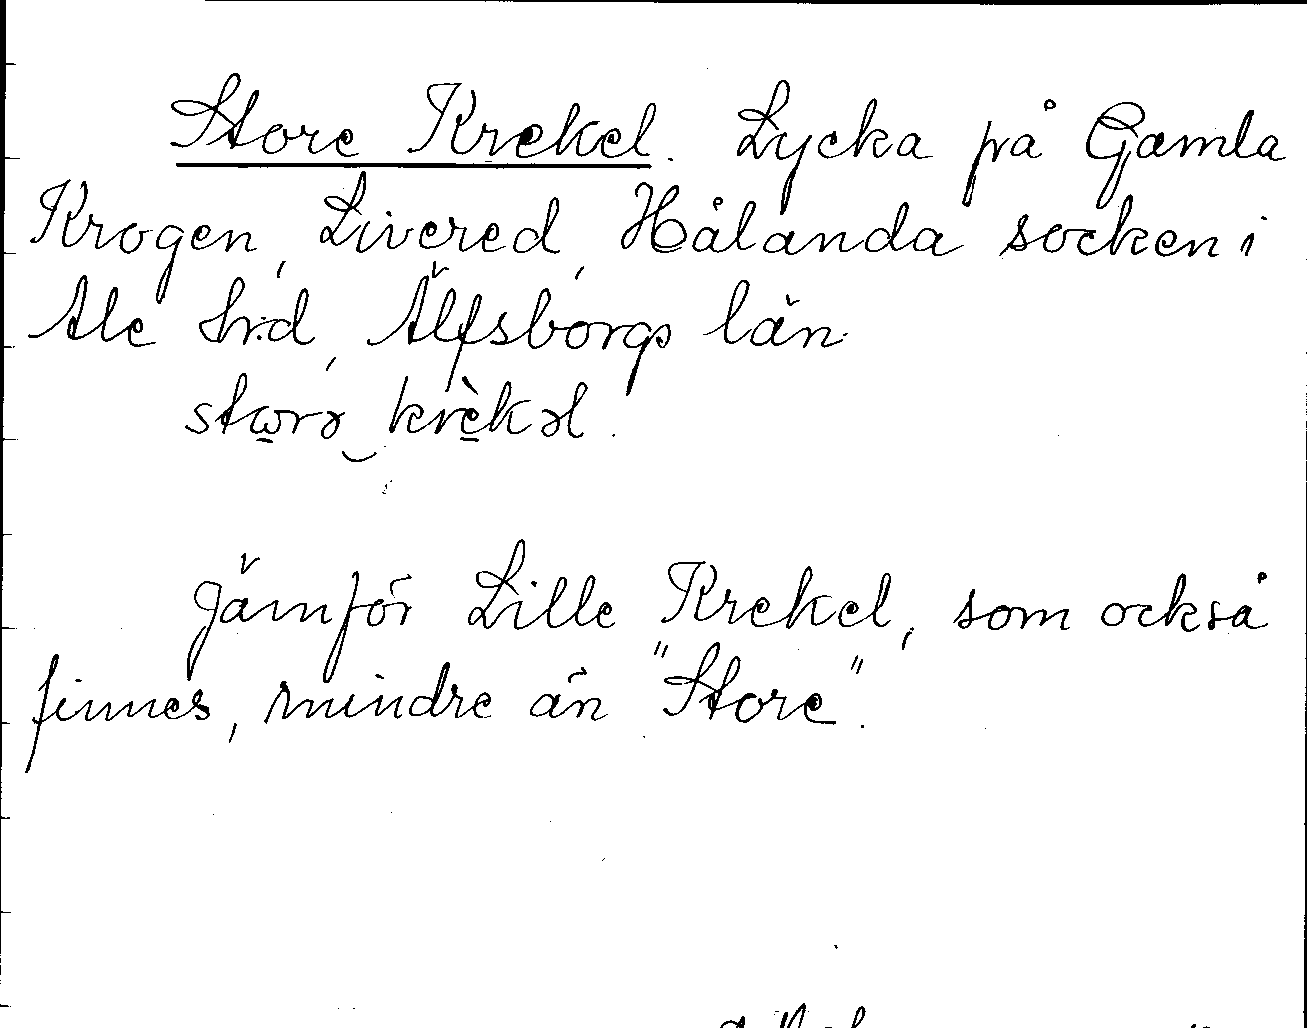 Store Krekel. Lycka på Gamla
Krogen, Livered, Hålanda socken i
Ale hrd, Älfsborgs län.
stɷrə krèkəl.
Jämför Lille Krekel, som också
finnes, mindre än "Store".